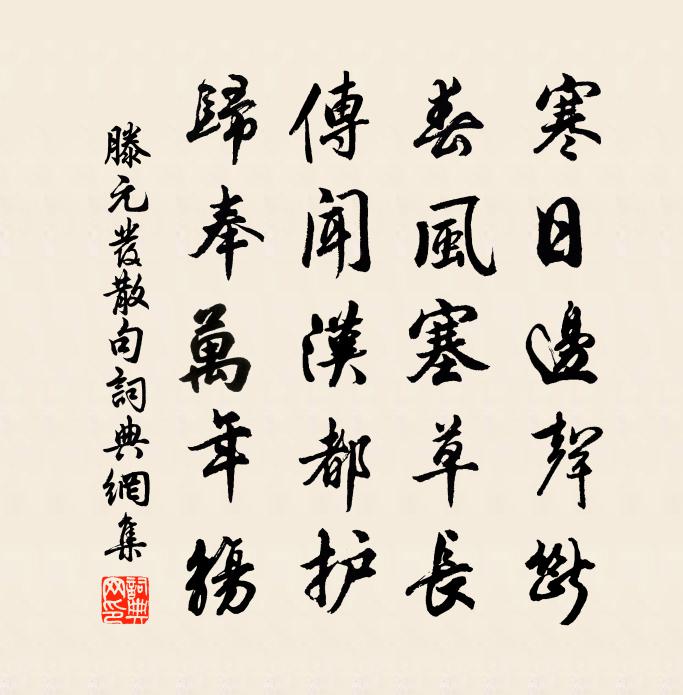 寒日邊聲斷
春風塞草長
傳聞漢都护
歸奉萬年觴
滕元發散句詞典網集
詞典網印